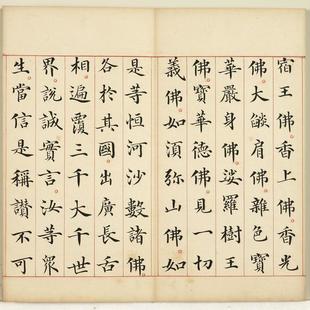 宿王佛香上佛香光
佛大燄肩佛雜色寶
華嚴身佛娑羅樹王
佛寶華德佛見一切
義佛如湏彌山佛如
是等恒河沙數諸佛
各於其國出廣長舌
相遍覆三千大千世
界說誠實言汝等眾
生當信是稱讚不可